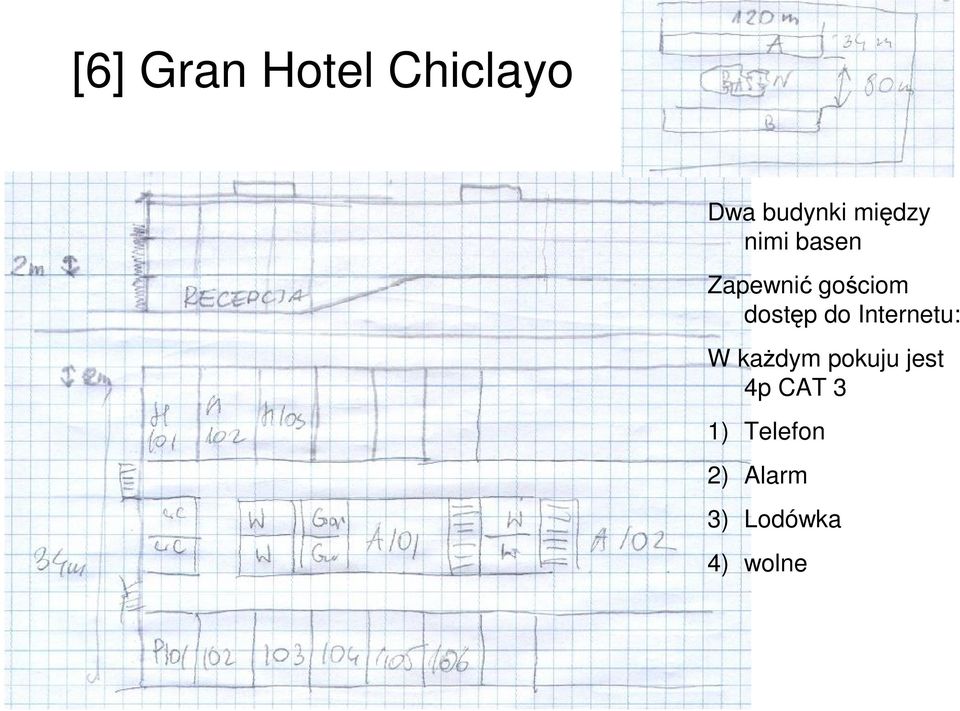 [6] Gran Hotel Chiclayo
120 m
A
34 m
BASEN
80m
B
Dwa budynki między
nimi basen
Zapewnić gościom
dostęp do Internetu:
W każdym pokuju jest
4p CAT 3
1) Telefon
2) Alarm
3) Lodówka
4) wolne
2m
RECEPCJA
2m
101
102
103
WC
WC
W
W
Gar
Gar
A/01
W
W
A/02
34m
P101
102
103
104
105
106